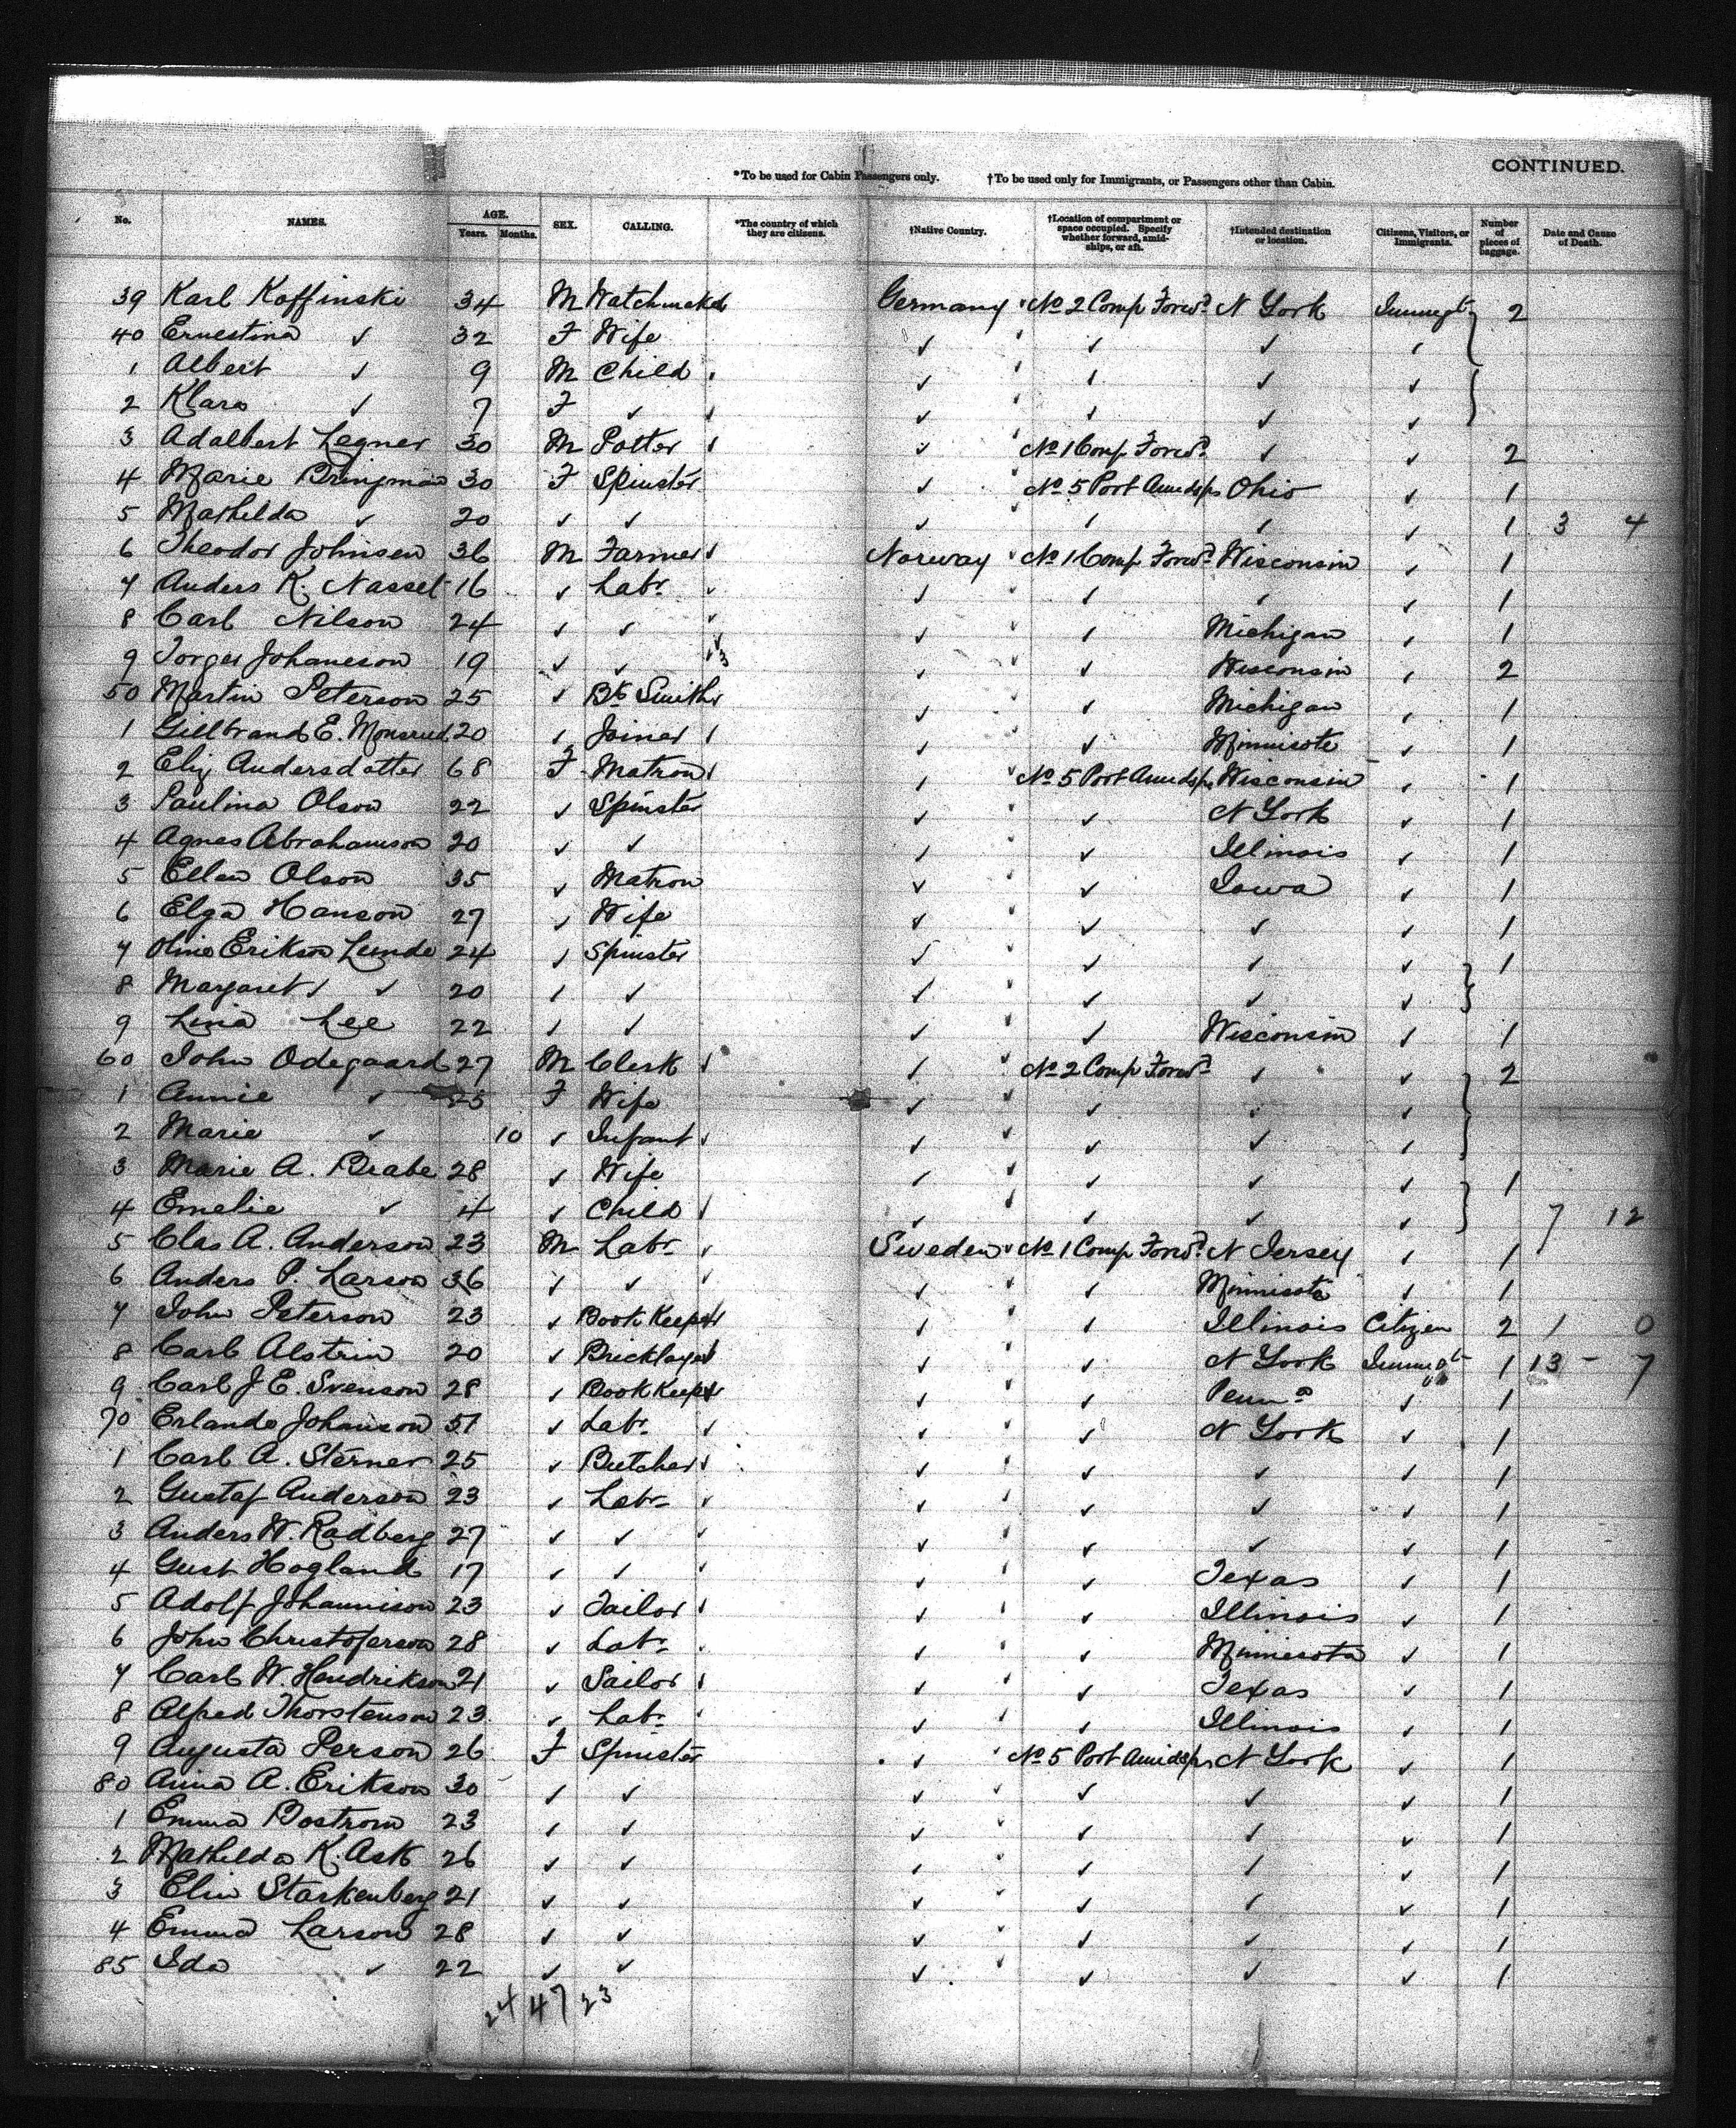 CONTINUED.
*To be used for Cabin Passengers only. †To be used only for Immigrants, or Passengers other than Cabin.
No. NAMES. AGE. Years. Months. SEX. CALLING. *The country of which they are citizens. †Native Country. †Location of compartment or space occupied. Specify whether forward, amidships, or aft. †Intended destination or location. Citizens, Visitors, or Immigrants. Number of pieces of baggage. Date and Cause of Death.
39 Karl Koffinski 34 M Watchmaker Germany No 2 Comp Forwd N York Immigt 2
40 Ernestina ✓ 32 F Wife ✓ ✓ ✓ ✓
1 Albert ✓ 9 M Child ✓ ✓ ✓ ✓
2 Klara ✓ 7 F ✓ ✓ ✓ ✓ ✓
3 Adalbert Legner 30 M Potter ✓ No 1 Comp Forwd ✓ ✓ 2
4 Marie Bringman 30 F Spinster ✓ No 5 Port Amidsps Ohio ✓ 1
5 Mathilda ✓ 20 ✓ ✓ ✓ ✓ ✓ ✓ 1 3 4
6 Theodor Johnsen 36 M Farmer Norway No 1 Comp Forwd Wisconsin ✓ 1
7 Anders K. Nasset 16 ✓ Labr ✓ ✓ ✓ ✓ 1
8 Carl Nilson 24 ✓ ✓ ✓ ✓ Michigan ✓ 1
9 Torger Johaneson 19 ✓ ✓ ✓ ✓ Wisconsin ✓ 2
50 Martin Peterson 25 ✓ Bk Smith ✓ ✓ Michigan ✓ 1
1 Gilbrand E. Monsrud 20 ✓ Joiner ✓ ✓ Minnisota ✓ 1
2 Eliz Andersdatter 68 F Matron ✓ No 5 Port Amidsps Wisconsin ✓ 1
3 Paulina Olson 22 ✓ Spinster ✓ ✓ N York ✓ 1
4 Agnes Abrahamson 20 ✓ ✓ ✓ ✓ Illinois ✓ 1
5 Ellen Olson 35 ✓ Matron ✓ ✓ Iowa ✓ 1
6 Elga Hanson 27 ✓ Wife ✓ ✓ ✓ ✓ 1
7 Oline Erikson Lunde 24 ✓ Spinster ✓ ✓ ✓ ✓ 1
8 Margaret ✓ ✓ 20 ✓ ✓ ✓ ✓ ✓ ✓
9 Lina Lee 22 ✓ ✓ ✓ ✓ Wisconsin ✓ 1
60 John Odegaard 27 M Clerk ✓ No 2 Comp Forwd ✓ ✓ 2
1 Annie ✓ 25 F Wife ✓ ✓ ✓ ✓
2 Marie ✓ 10 ✓ Infant ✓ ✓ ✓ ✓
3 Marie A. Brabe 28 ✓ Wife ✓ ✓ ✓ ✓ 1
4 Emelie ✓ 4 ✓ Child ✓ ✓ ✓ ✓ 7 12
5 Clas A. Anderson 23 M Labr Sweden No 1 Comp Forwd N Jersey ✓ 1
6 Anders P. Larson 36 ✓ ✓ ✓ ✓ Minnisota ✓ 1
7 John Peterson 23 ✓ Book Keeper ✓ ✓ Illinois Citizen 2 1 0
8 Carl Alstrin 20 ✓ Bricklayer ✓ ✓ N York Immigt 1 13 - 7
9 Carl J E. Svenson 28 ✓ Book Keeper ✓ ✓ Penna ✓ 1
70 Erlando Johanson 51 ✓ Labr ✓ ✓ N York ✓ 1
1 Carl A. Sterner 25 ✓ Butcher ✓ ✓ ✓ ✓ 1
2 Gustaf Anderson 23 ✓ Labr ✓ ✓ ✓ ✓ 1
3 Anders W. Radberg 27 ✓ ✓ ✓ ✓ ✓ ✓ 1
4 Gust Hogland 17 ✓ ✓ ✓ ✓ Texas ✓ 1
5 Adolf Johannison 23 ✓ Tailor ✓ ✓ Illinois ✓ 1
6 John Christoferson 28 ✓ Labr ✓ ✓ Minnesota ✓ 1
7 Carl W. Hendrikson 21 ✓ Sailor ✓ ✓ Texas ✓ 1
8 Alfred Thorstenson 23 ✓ Labr ✓ ✓ Illinois ✓ 1
9 Augusta Person 26 F Spinster ✓ No 5 Port Amidsps N York ✓ 1
80 Anna A. Erikson 30 ✓ ✓ ✓ ✓ ✓ ✓ 1
1 Emma Bostrom 23 ✓ ✓ ✓ ✓ ✓ ✓ 1
2 Mathilda K. Ask 26 ✓ ✓ ✓ ✓ ✓ ✓ 1
3 Elin Starkenberg 21 ✓ ✓ ✓ ✓ ✓ ✓ 1
4 Emma Larson 28 ✓ ✓ ✓ ✓ ✓ ✓ 1
85 Ida ✓ 22 ✓ ✓ ✓ ✓ ✓ ✓ 1
24 47 23